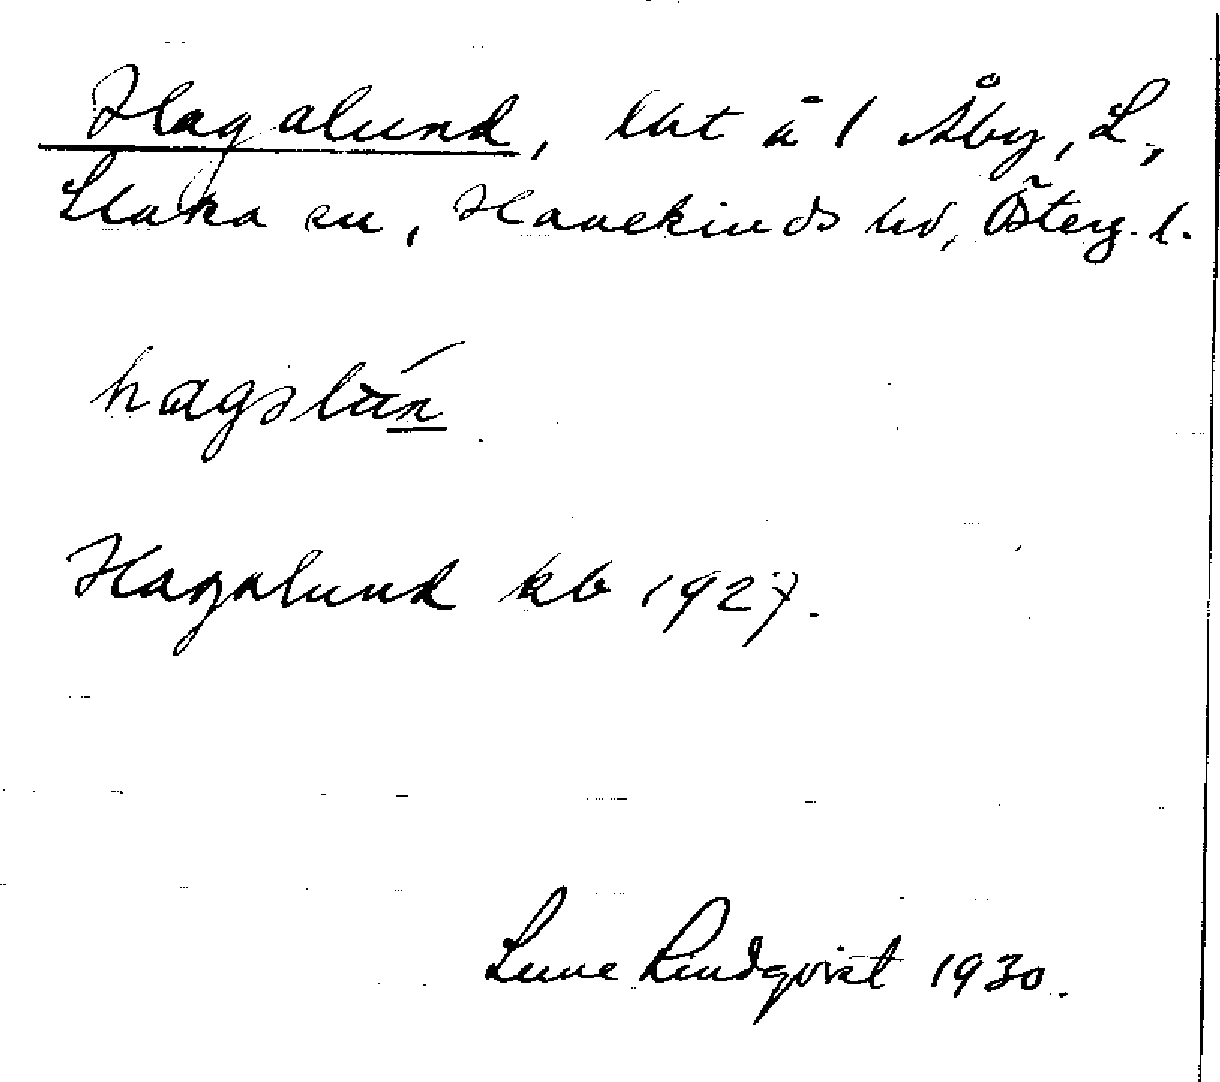 Hagalund, lht å 1 Åby, L.,
Slaka sn, Hanekinds hd, Österg. l.
hagəlún
Hagalund kb 1927.
Sune Lindqvist 1930.